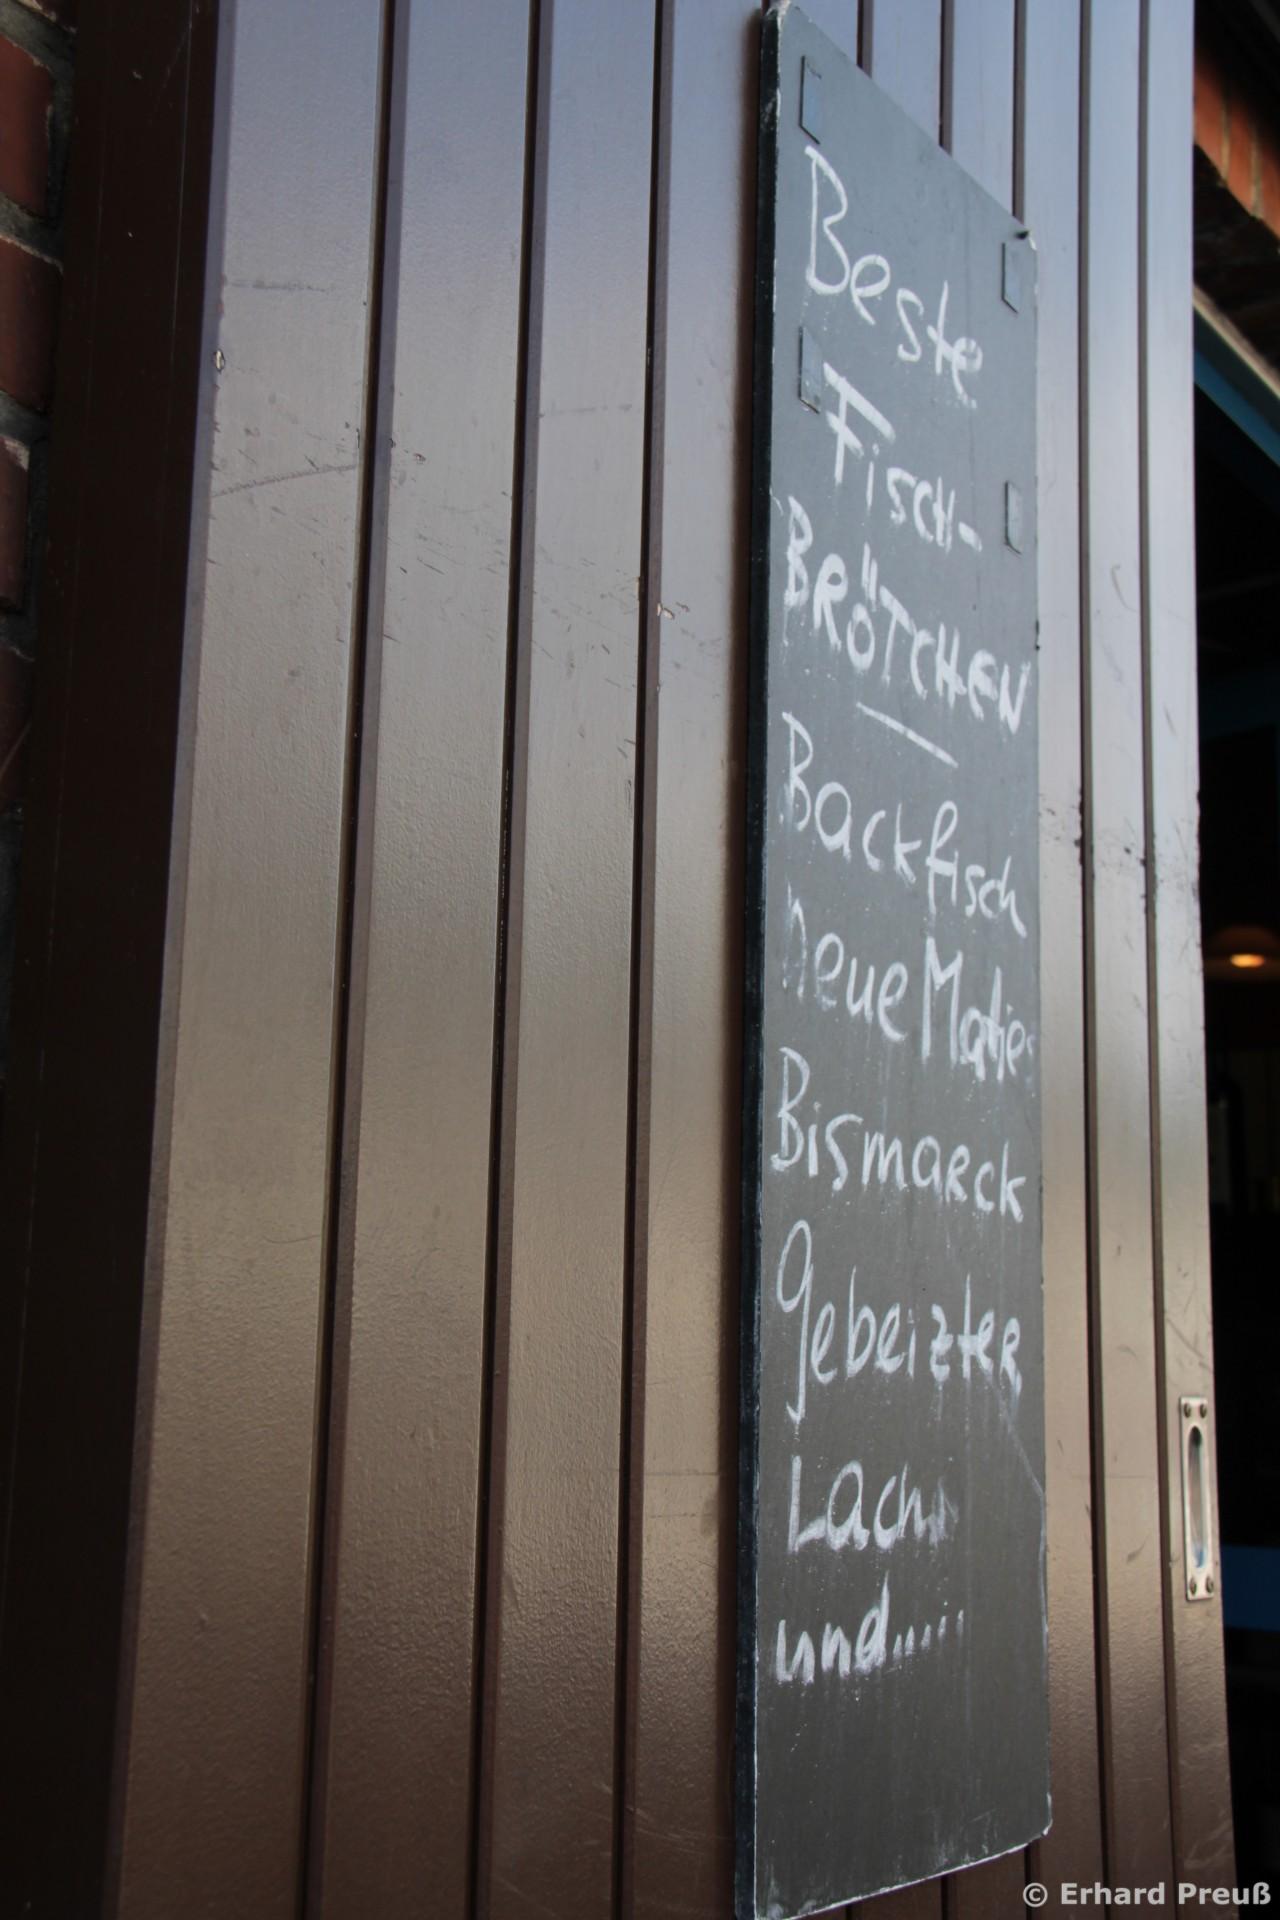 Beste
Fisch-
BRÖTCHEN
Backfisch
neue Matjes
Bismarck
Gebeizter
Lachs
und.....
© Erhard Preuß